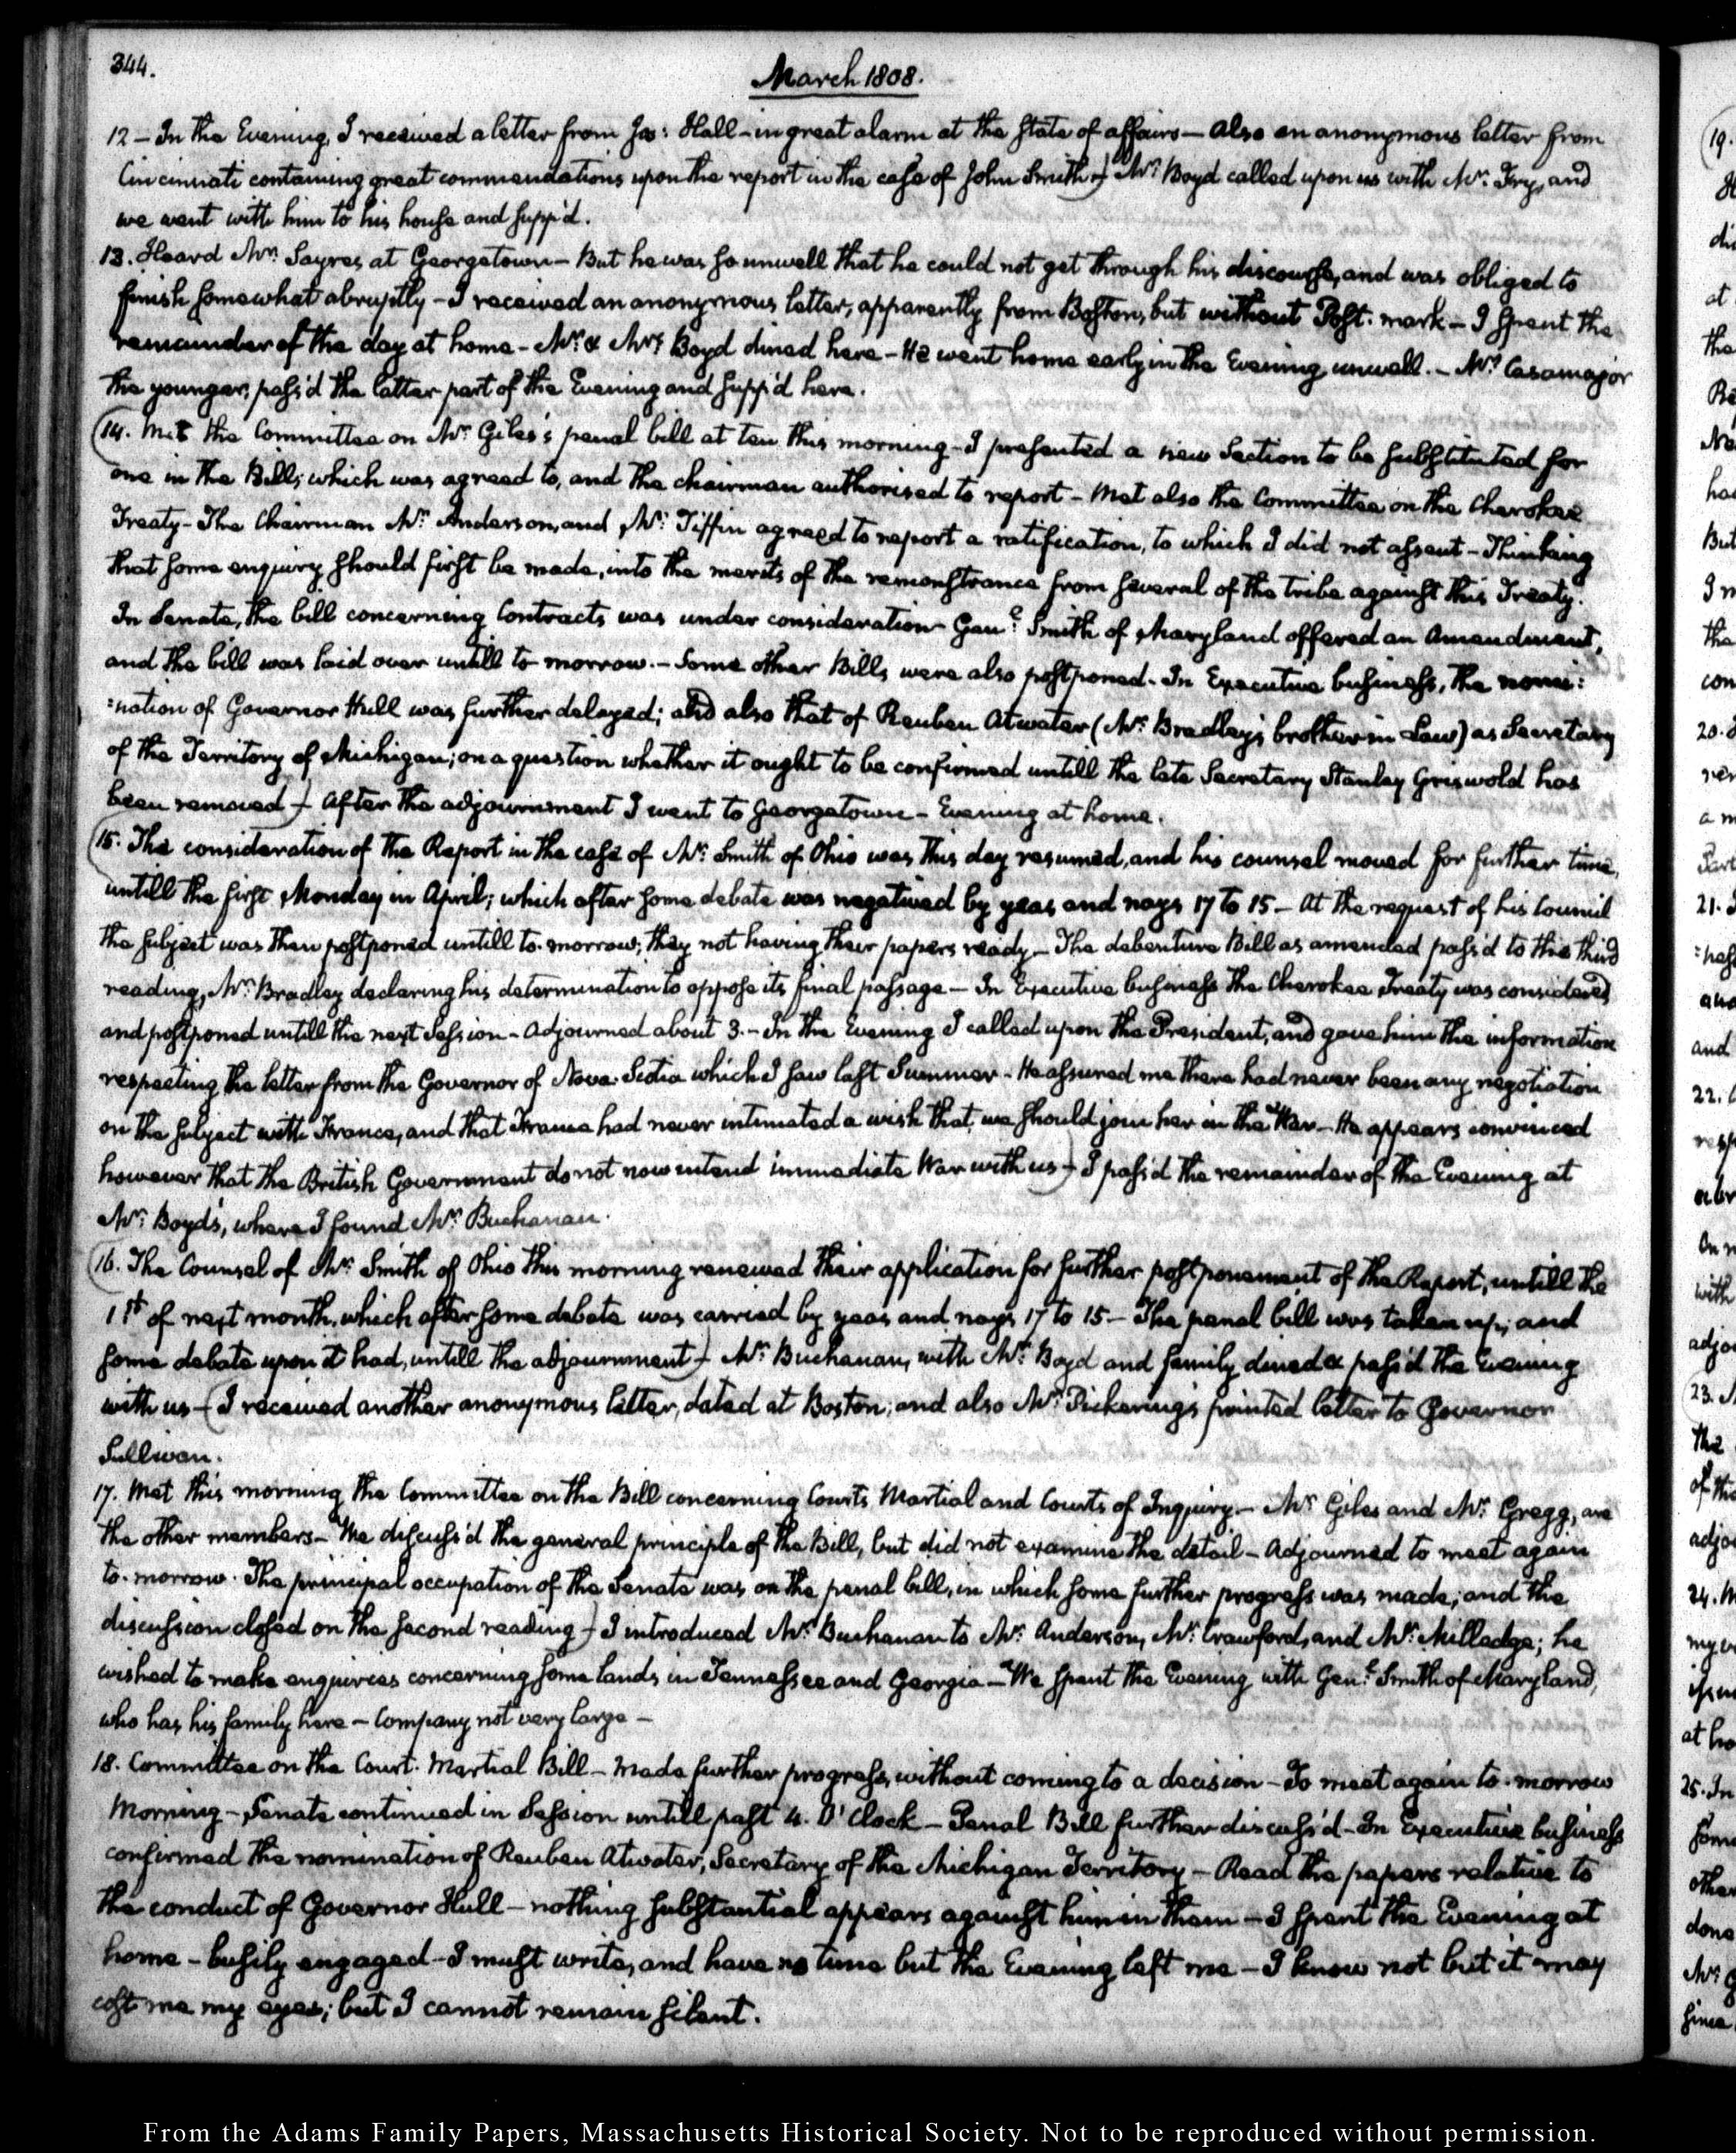 344.
March 1808.
12 – In the Evening, I received a letter from Jos: Hall – in great alarm at the state of affairs – Also an anonymous letter from
Cincinnati containing great commendations upon the report in the case of John Smith –) Mr: Boyd called upon us with Mr. Fry, and
we went with him to his house and supp'd.
13. Heard Mr. Sayres at Georgetown – But he was so unwell that he could not get through his discourse, and was obliged to
finish somewhat abruptly – I received an anonymous letter, apparently from Boston, but without Post-mark – I spent the
remainder of the day at home – Mr. & Mrs. Boyd dined here – He went home early in the Evening unwell. – Mr. Casamajor
the younger, pass'd the latter part of the Evening and supp'd here.
(14. Met the Committee on Mr. Giles's penal bill at ten this morning – I presented a new Section to be substituted for
one in the Bill; which was agreed to, and the chairman authorised to report – Met also the Committee on the Cherokee
Treaty – The Chairman Mr. Anderson, and Mr. Tiffin agreed to report a ratification, to which I did not assent – Thinking
that some enquiry should first be made, into the merits of the remonstrance from several of the tribe against this Treaty.
In Senate, the bill concerning Contracts was under consideration – Genl. Smith of Maryland offered an Amendment,
and the bill was laid over untill to-morrow. – Some other Bills were also postponed – In Executive business, the nomi:
:nation of Governor Hull was further delayed; and also that of Reuben Atwater (Mr. Bradley's brother in Law) as Secretary
of the Territory of Michigan; on a question whether it ought to be confirmed untill the late Secretary Stanley Griswold has
been removed –) After the adjournment I went to Georgetown – Evening at home.
(15. The consideration of the Report in the case of Mr: Smith of Ohio was this day resumed, and his counsel moved for further time,
untill the first Monday in April; which after some debate was negatived by yeas and nays 17 to 15 – At the request of his Council
the subject was then postponed untill to-morrow; they not having their papers ready – The debenture Bill as amended pass'd to the third
reading, Mr. Bradley declaring his determination to oppose its final passage – In Executive business the Cherokee Treaty was considered
and postponed untill the next Session – Adjourned about 3. – In the Evening I called upon the President, and gave him the information
respecting the letter from the Governor of Nova-Scotia which I saw last Summer – He assured me there had never been any negotiation
on the subject with France, and that France had never intimated a wish that we should join her in the War – He appears convinced
however that the British Government do not now intend immediate War with us –) I pass'd the remainder of the Evening at
Mr: Boyd's, where I found Mr. Buchanan.
(16. The Counsel of Mr: Smith of Ohio this morning renewed their application for further postponement of the Report, untill the
1st of next month, which after some debate was carried by yeas and nays 17 to 15 – The penal bill was taken up, and
some debate upon it had, untill the adjournment –) Mr. Buchanan, with Mr. Boyd and family dined & pass'd the Evening
with us – (I received another anonymous letter, dated at Boston; and also Mr. Pickering's printed letter to Governor
Sullivan.
17. Met this morning the Committee on the Bill concerning Courts Martial and Courts of Inquiry – Mr. Giles and Mr. Gregg, are
the other members – We discuss'd the general principle of the Bill, but did not examine the detail – Adjourned to meet again
to-morrow. The principal occupation of the Senate was on the penal bill, in which some further progress was made; and the
discussion closed on the second reading –) I introduced Mr. Buchanan to Mr. Anderson, Mr. Crawford, and Mr. Milledge; he
wished to make enquiries concerning some lands in Tennessee and Georgia – We spent the Evening with Genl. Smith of Maryland,
who has his family here – Company not very large –
18. Committee on the Court-Martial Bill – Made further progress, without coming to a decision – To meet again to-morrow
Morning – Senate continued in Session untill past 4. O'Clock – Penal Bill further discuss'd – In Executive business
confirmed the nomination of Reuben Atwater, Secretary of the Michigan Territory – Read the papers relative to
the conduct of Governor Hull – nothing substantial appears against him in them – I spent the Evening at
home – busily engaged – I must write, and have no time but the Evening left me – I know not but it may
cost me my eyes; but I cannot remain silent.
From the Adams Family Papers, Massachusetts Historical Society. Not to be reproduced without permission.